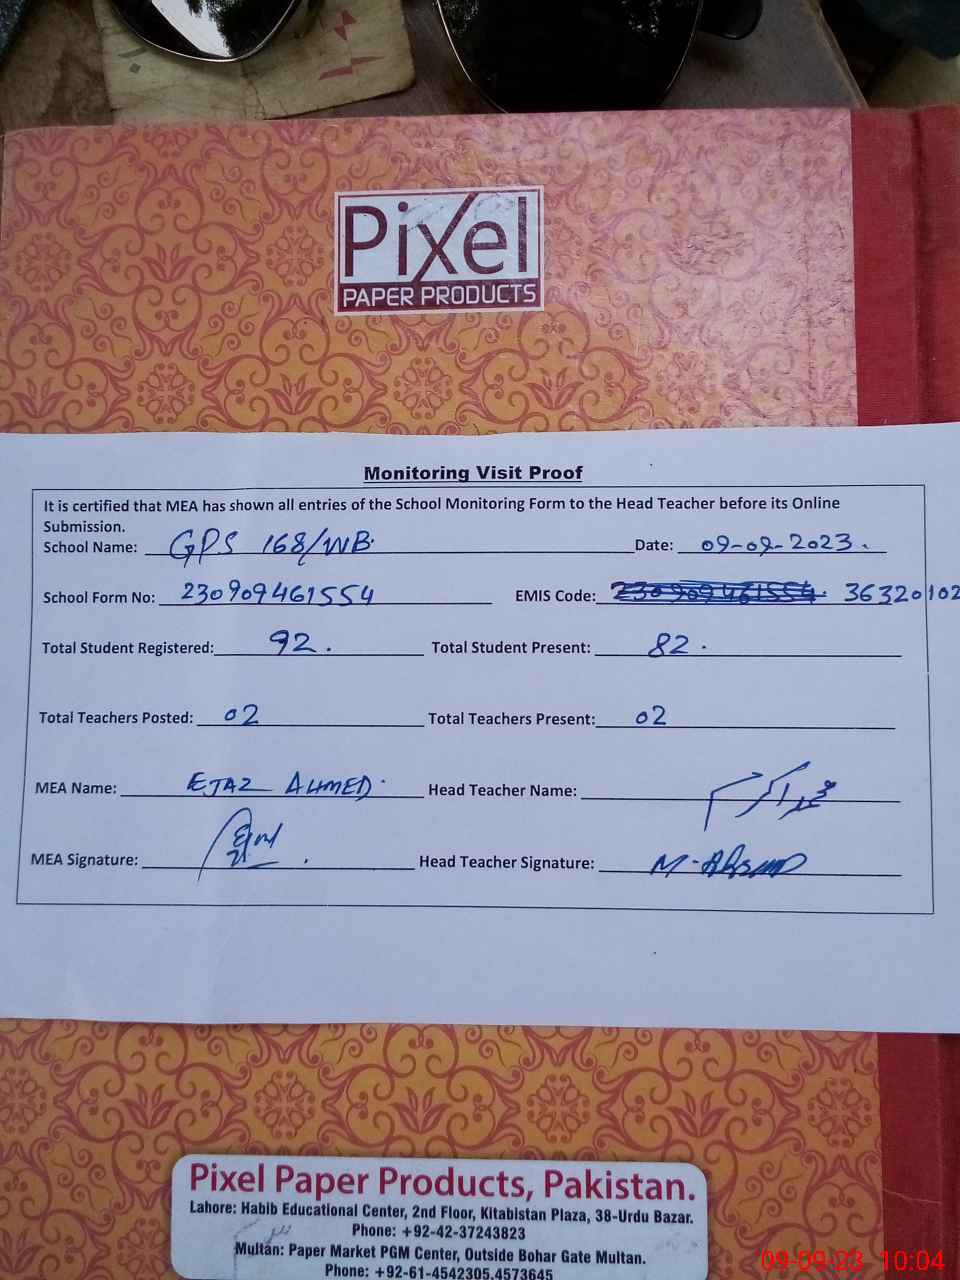 Pixel
PAPER PRODUCTS
Monitoring Visit Proof
It is certified that MEA has shown all entries of the School Monitoring Form to the Head Teacher before its Online
Submission.
School Name: GPS 168/WB. Date: 09-09-2023.
School Form No: 230909461554 EMIS Code: 230909461554. 36320102
Total Student Registered: 92. Total Student Present: 82.
Total Teachers Posted: 02 Total Teachers Present: 02
MEA Name: EJAZ AHMED. Head Teacher Name:
MEA Signature: Head Teacher Signature:
Pixel Paper Products, Pakistan.
Lahore: Habib Educational Center, 2nd Floor, Kitabistan Plaza, 38-Urdu Bazar.
Phone: +92-42-37243823
Multan: Paper Market PGM Center, Outside Bohar Gate Multan.
Phone: +92-61-4542305,4573645
09-09-23 10:04